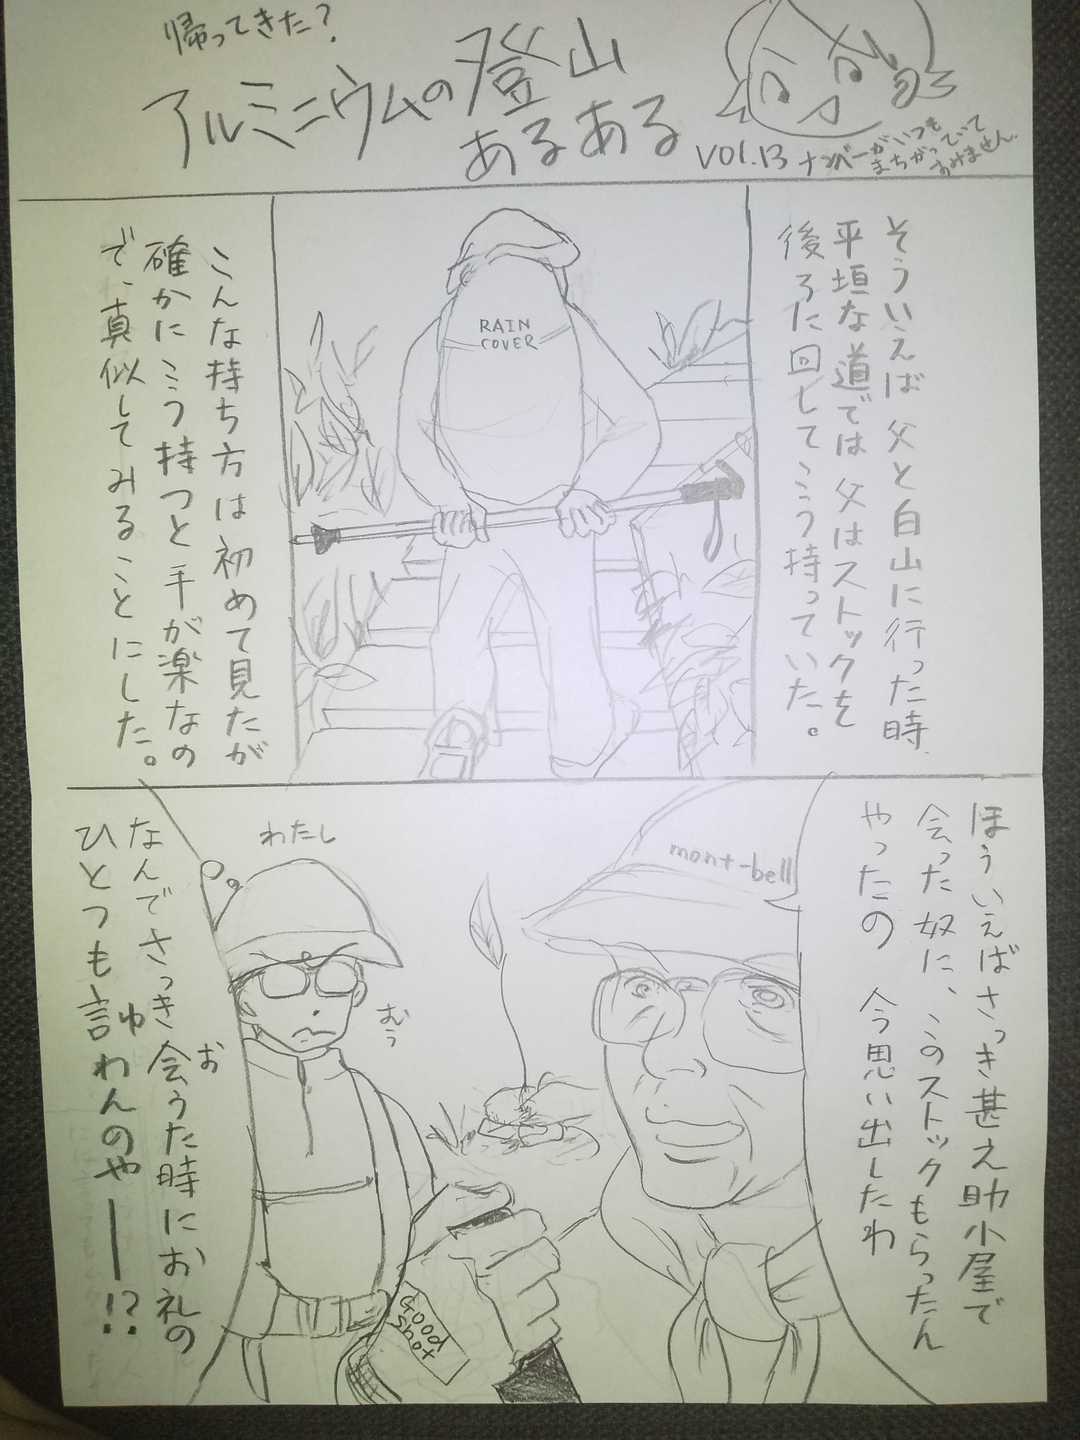 帰ってきた?
アルミニウムの登山
あるある
VOl.13
ナンバーがいつも
まちがっていて
すみません.
そういえば父と白山に行った時
平垣な道では父はストックを
後ろに回してこう持っていた。
RAIN
COVER
こんな持ち方は初めて見たが
確かにこう持つと手が楽なの
で、真似してみることにした。
ほういえばさっき甚え助小屋で
会った奴に、このストックもらったん
やったの 今思い出したわ
mont-bell
わたし
むぅ
Good
Shot
なんでさっき会うた時にお礼の
お
ひとつも言わんのやー!?
ゆ